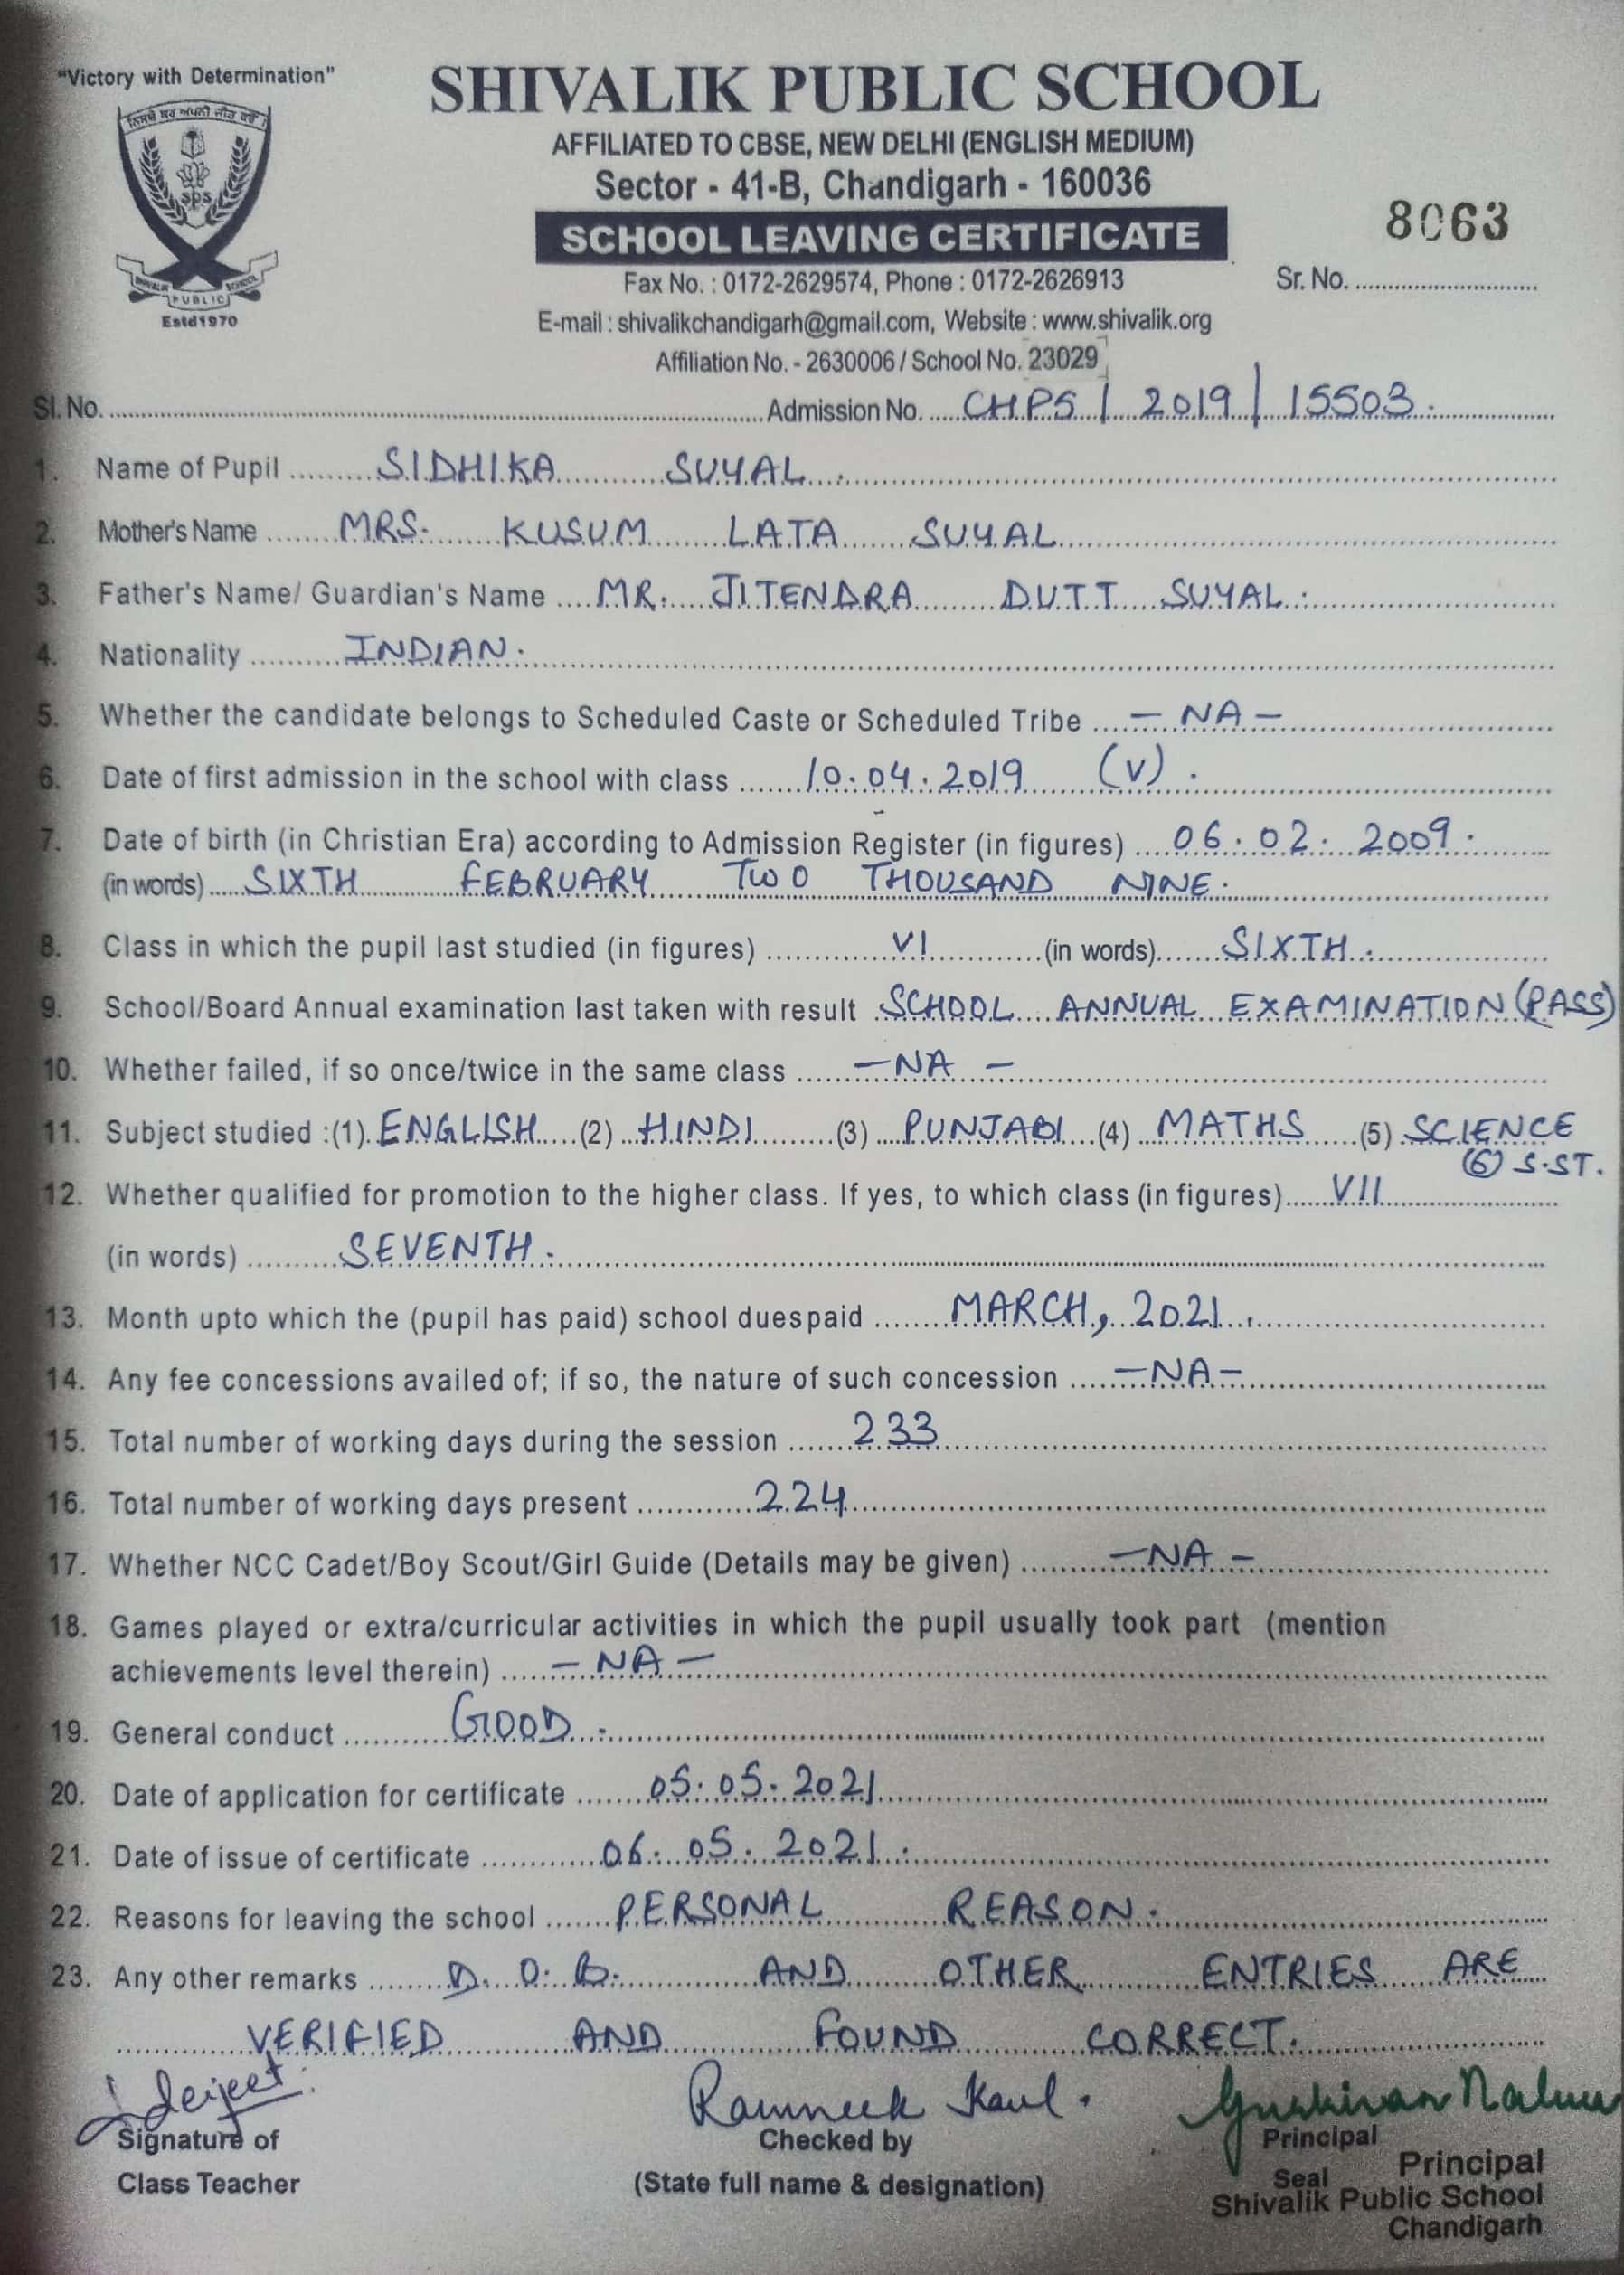 "Victory with Determination"
SHIVALIK PUBLIC SCHOOL
AFFILIATED TO CBSE, NEW DELHI (ENGLISH MEDIUM)
Sector - 41-B, Chandigarh - 160036
SCHOOL LEAVING CERTIFICATE
8063
Fax No. : 0172-2629574, Phone : 0172-2626913
Sr. No.
E-mail : shivalikchandigarh@gmail.com, Website : www.shivalik.org
Affiliation No. - 2630006 / School No. 23029
sps
SHIVALIK PUBLIC SCHOOL
Estd1970
Sl. No. Admission No. CHPS / 2019 / 15503.
1. Name of Pupil SIDHIKA SUYAL.
2. Mother's Name MRS. KUSUM LATA SUYAL
3. Father's Name/ Guardian's Name MR. JITENDRA DUTT SUYAL.
4. Nationality INDIAN.
5. Whether the candidate belongs to Scheduled Caste or Scheduled Tribe - NA -
6. Date of first admission in the school with class 10.04.2019 (V).
7. Date of birth (in Christian Era) according to Admission Register (in figures) 06.02.2009.
(in words) SIXTH FEBRUARY TWO THOUSAND NINE.
8. Class in which the pupil last studied (in figures) VI (in words) SIXTH.
9. School/Board Annual examination last taken with result SCHOOL ANNUAL EXAMINATION (PASS)
10. Whether failed, if so once/twice in the same class - NA -
11. Subject studied :(1) ENGLISH (2) HINDI (3) PUNJABI (4) MATHS (5) SCIENCE
(6) S.ST.
12. Whether qualified for promotion to the higher class. If yes, to which class (in figures) VII
(in words) SEVENTH.
13. Month upto which the (pupil has paid) school duespaid MARCH, 2021.
14. Any fee concessions availed of; if so, the nature of such concession - NA -
15. Total number of working days during the session 233
16. Total number of working days present 224
17. Whether NCC Cadet/Boy Scout/Girl Guide (Details may be given) - NA -
18. Games played or extra/curricular activities in which the pupil usually took part (mention
achievements level therein) - NA -
19. General conduct GOOD.
20. Date of application for certificate 05.05.2021
21. Date of issue of certificate 06.05.2021.
22. Reasons for leaving the school PERSONAL REASON.
23. Any other remarks D.O.B. AND OTHER ENTRIES ARE
VERIFIED AND FOUND CORRECT.
Ramneek Kaul.
Signature of
Class Teacher
Checked by
(State full name & designation)
Principal
Seal
Principal
Shivalik Public School
Chandigarh